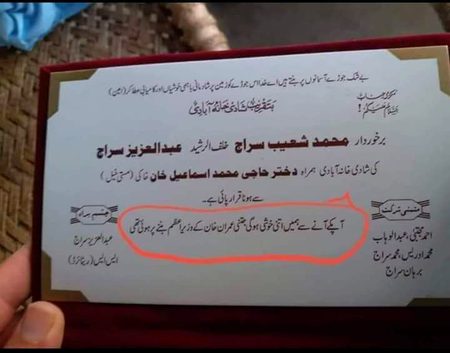 بے شک جوڑے آسمانوں پر بنتے ہیں اے خدا اس جوڑے کو زمین پر شادمانی باہمی خوشیاں اور کامیابی عطا کر (آمین)
السلام علیکم!
بتقریب شادی خانہ آبادی
برخوردار محمد شعیب سراج خلف الرشید عبدالعزیز سراج
کی شادی خانہ آبادی ہمراہ دختر حاجی محمد اسماعیل خان خاکی (مستی خیل)
سے ہونا قرار پائی ہے۔
آپکے آنے سے ہمیں اتنی خوشی ہوگی جتنی عمران خان کے وزیراعظم بننے پر ہوئی تھی
متمنی شرکت
احمد مجتبیٰ، عبدالوہاب
محمد ادریس، محمد سراج
برہان سراج
چشم براہ
عبدالعزیز سراج
ایس ایس (ریٹائرڈ)